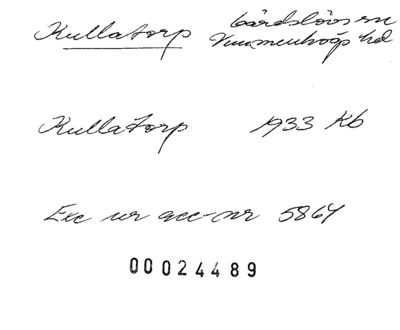 Kullatorp Gärdslövs sn
Vemmenhögs hd
Kullatorp 1933 Kb
Exc ur acc-nr 5864
00024489